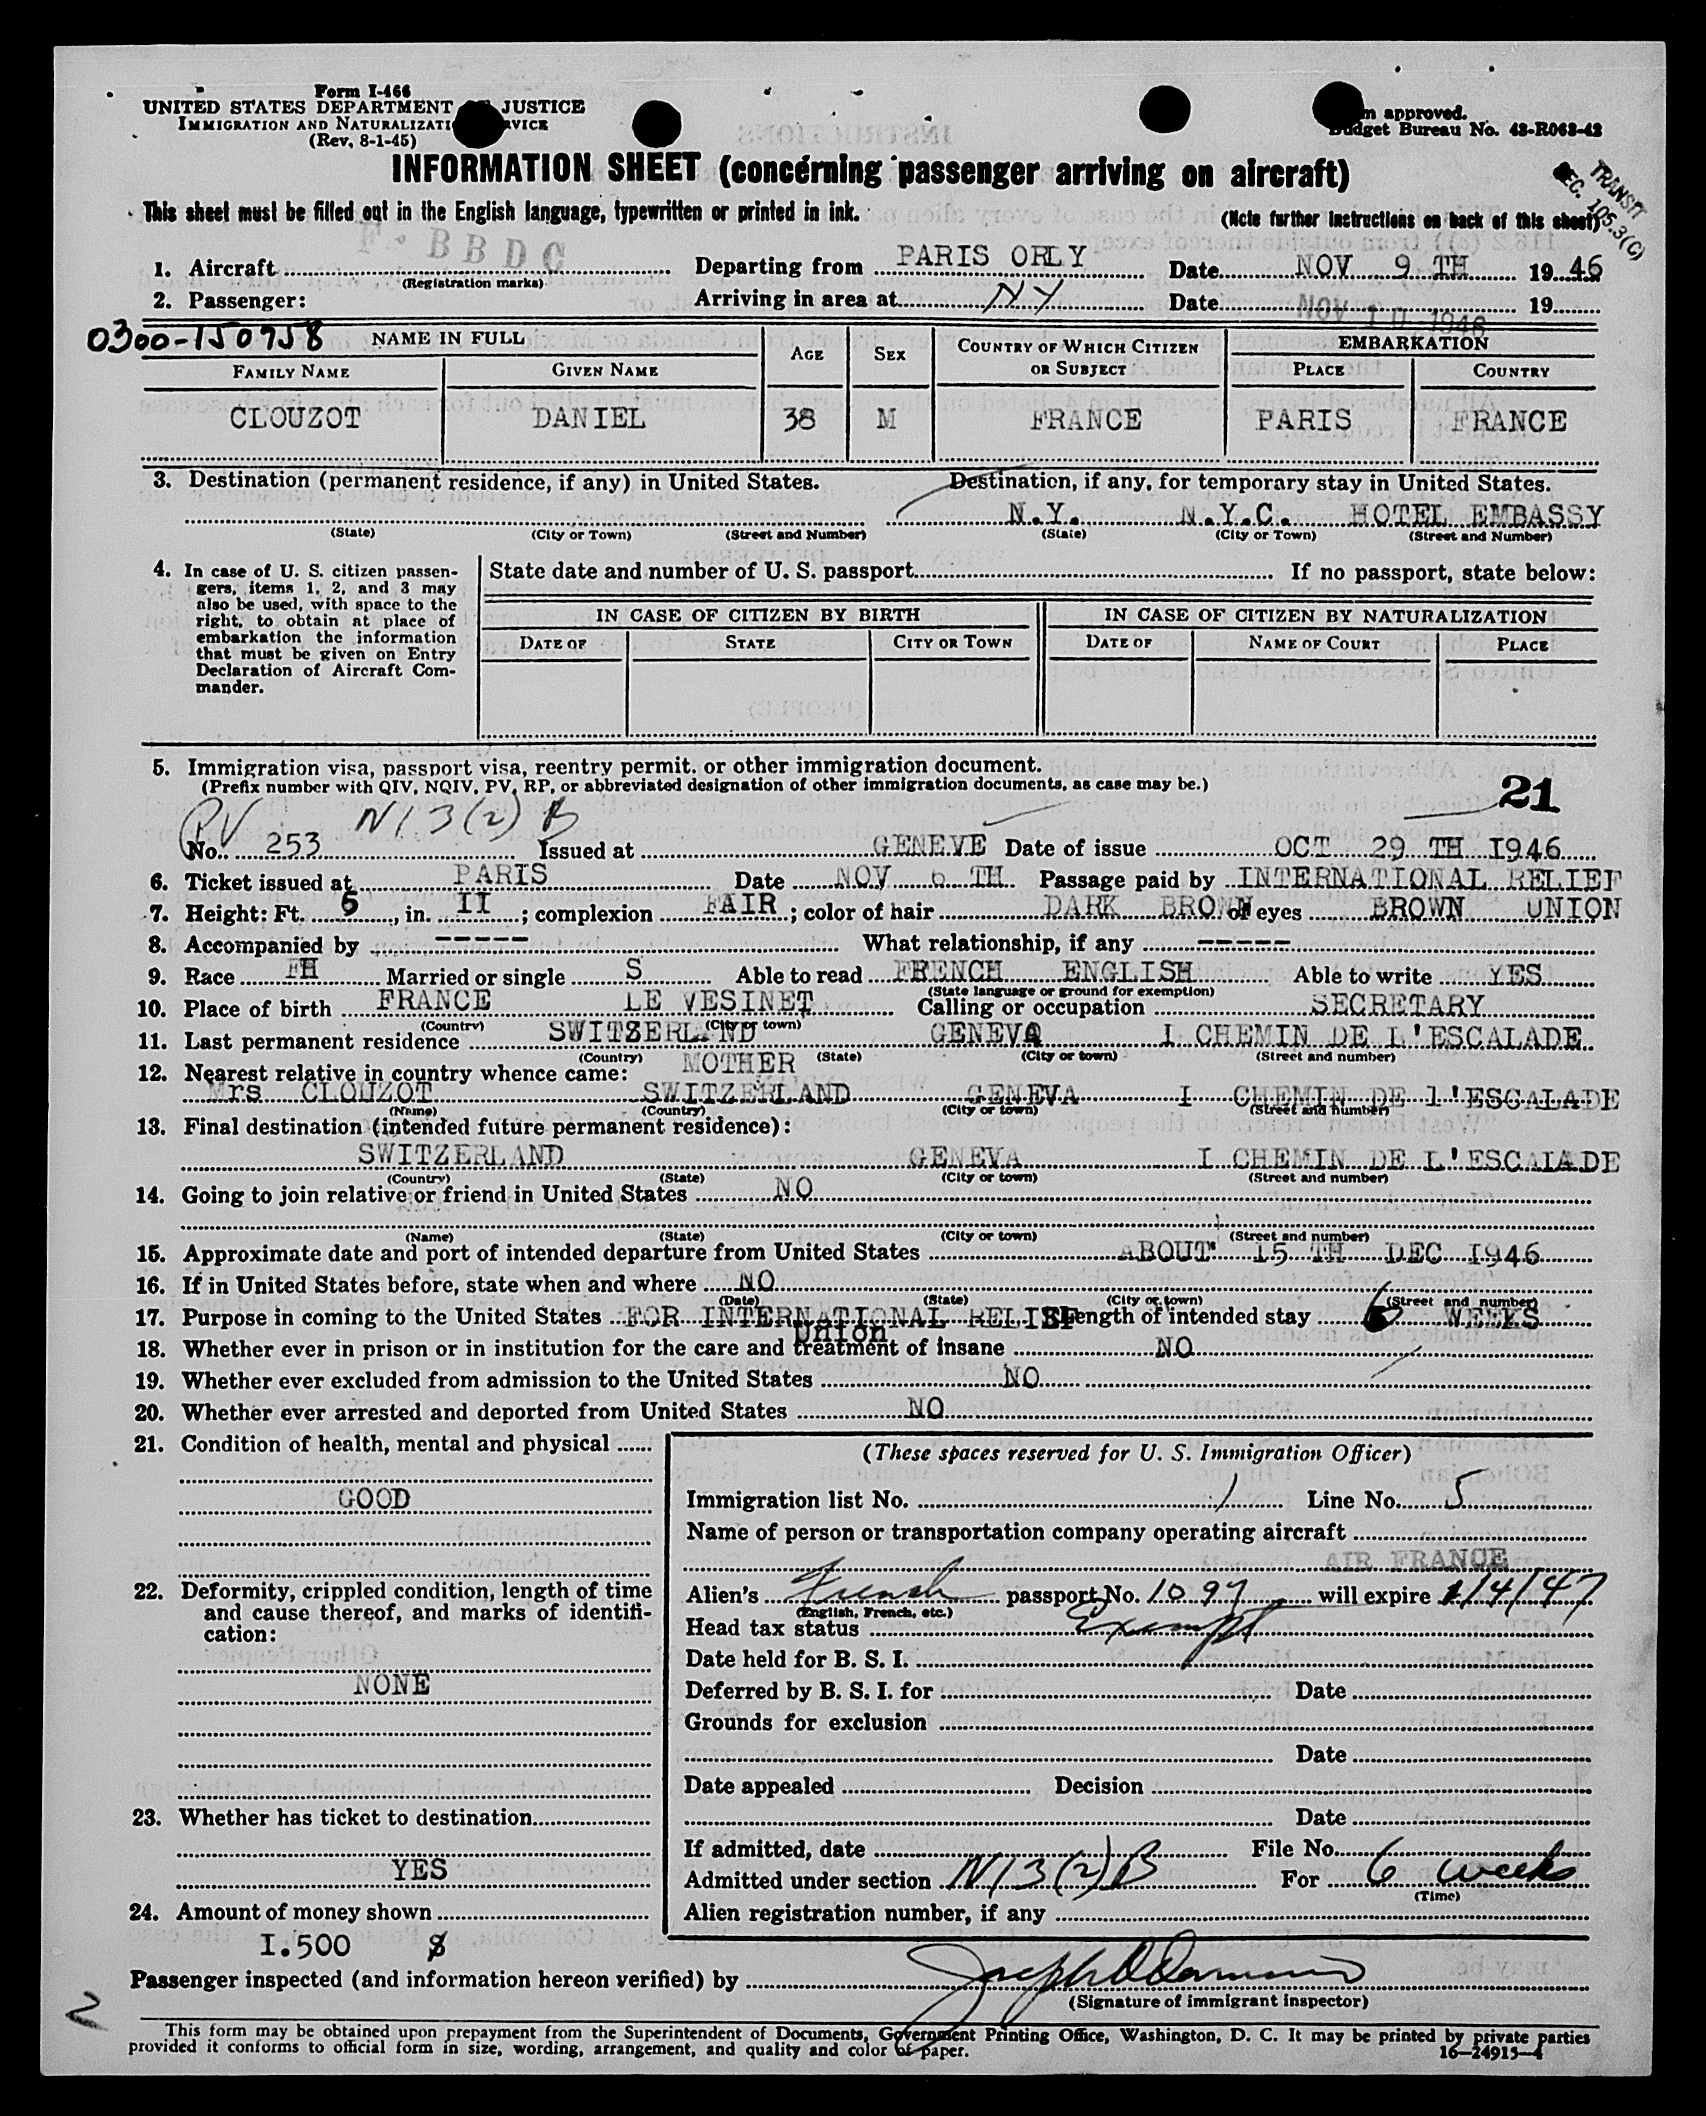 Form I-466
UNITED STATES DEPARTMENT JUSTICE
IMMIGRATION AND NATURALIZATI RVICE
(Rev. 8-1-45)
m approved.
Budget Bureau No. 43-R063-42
INFORMATION SHEET (concerning passenger arriving on aircraft)
TRANSIT
SEC. 105.3(C)
This sheet must be filled out in the English language, typewritten or printed in ink.
(Note further instructions on back of this sheet)
F-BBDC
1. Aircraft Departing from PARIS ORLY Date NOV 9 TH 1946
(Registration marks)
2. Passenger: Arriving in area at NY Date NOV 10 1946 19
0300-150958
NAME IN FULL AGE SEX COUNTRY OF WHICH CITIZEN OR SUBJECT EMBARKATION
FAMILY NAME GIVEN NAME PLACE COUNTRY
CLOUZOT DANIEL 38 M FRANCE PARIS FRANCE
3. Destination (permanent residence, if any) in United States. Destination, if any, for temporary stay in United States.
N.Y. N.Y.C. HOTEL EMBASSY
(State) (City or Town) (Street and Number) (State) (City or Town) (Street and Number)
4. In case of U. S. citizen passengers, items 1, 2, and 3 may also be used, with space to the right, to obtain at place of embarkation the information that must be given on Entry Declaration of Aircraft Commander.
State date and number of U. S. passport If no passport, state below:
IN CASE OF CITIZEN BY BIRTH IN CASE OF CITIZEN BY NATURALIZATION
DATE OF STATE CITY OR TOWN DATE OF NAME OF COURT PLACE
5. Immigration visa, passport visa, reentry permit, or other immigration document.
(Prefix number with QIV, NQIV, PV, RP, or abbreviated designation of other immigration documents, as case may be.)
21
PV N13(2)B
No. 253 Issued at GENEVE Date of issue OCT 29 TH I946
6. Ticket issued at PARIS Date NOV 6 TH Passage paid by INTERNATIONAL RELIEF
7. Height: Ft. 5, in. II; complexion FAIR; color of hair DARK BROWN of eyes BROWN UNION
8. Accompanied by ----- What relationship, if any -----
9. Race FH Married or single S Able to read FRENCH ENGLISH Able to write YES
(State language or ground for exemption)
10. Place of birth FRANCE LE VESINET Calling or occupation SECRETARY
(Country) (City or town)
11. Last permanent residence SWITZERLAND GENEVA I CHEMIN DE L'ESCALADE
(Country) (State) (City or town) (Street and number)
12. Nearest relative in country whence came: MOTHER
Mrs CLOUZOT SWITZERLAND GENEVA I CHEMIN DE l'ESCALADE
(Name) (Country) (City or town) (Street and number)
13. Final destination (intended future permanent residence):
SWITZERLAND GENEVA I CHEMIN DE L'ESCALADE
(Country) (State) (City or town) (Street and number)
14. Going to join relative or friend in United States NO
(Name) (State) (City or town) (Street and number)
15. Approximate date and port of intended departure from United States ABOUT 15 TH DEC I946
16. If in United States before, state when and where NO
(Date) (State) (City or town) (Street and number)
17. Purpose in coming to the United States FOR INTERNATIONAL RELIEF Length of intended stay 6 WEEKS
Union
18. Whether ever in prison or in institution for the care and treatment of insane NO
19. Whether ever excluded from admission to the United States NO
20. Whether ever arrested and deported from United States NO
21. Condition of health, mental and physical
GOOD
22. Deformity, crippled condition, length of time and cause thereof, and marks of identification:
NONE
23. Whether has ticket to destination
YES
24. Amount of money shown
I.500 $
(These spaces reserved for U. S. Immigration Officer)
Immigration list No. 1 Line No. 5
Name of person or transportation company operating aircraft
AIR FRANCE
Alien's French passport No. 1097 will expire 1/4/47
(English, French, etc.)
Head tax status Exempt
Date held for B. S. I.
Deferred by B. S. I. for Date
Grounds for exclusion
Date
Date appealed Decision
Date
If admitted, date File No.
Admitted under section N13(2)B For 6 weeks
(Time)
Alien registration number, if any
Passenger inspected (and information hereon verified) by
(Signature of immigrant inspector)
2
This form may be obtained upon prepayment from the Superintendent of Documents, Government Printing Office, Washington, D. C. It may be printed by private parties
provided it conforms to official form in size, wording, arrangement, and quality and color of paper.
16—24915-4